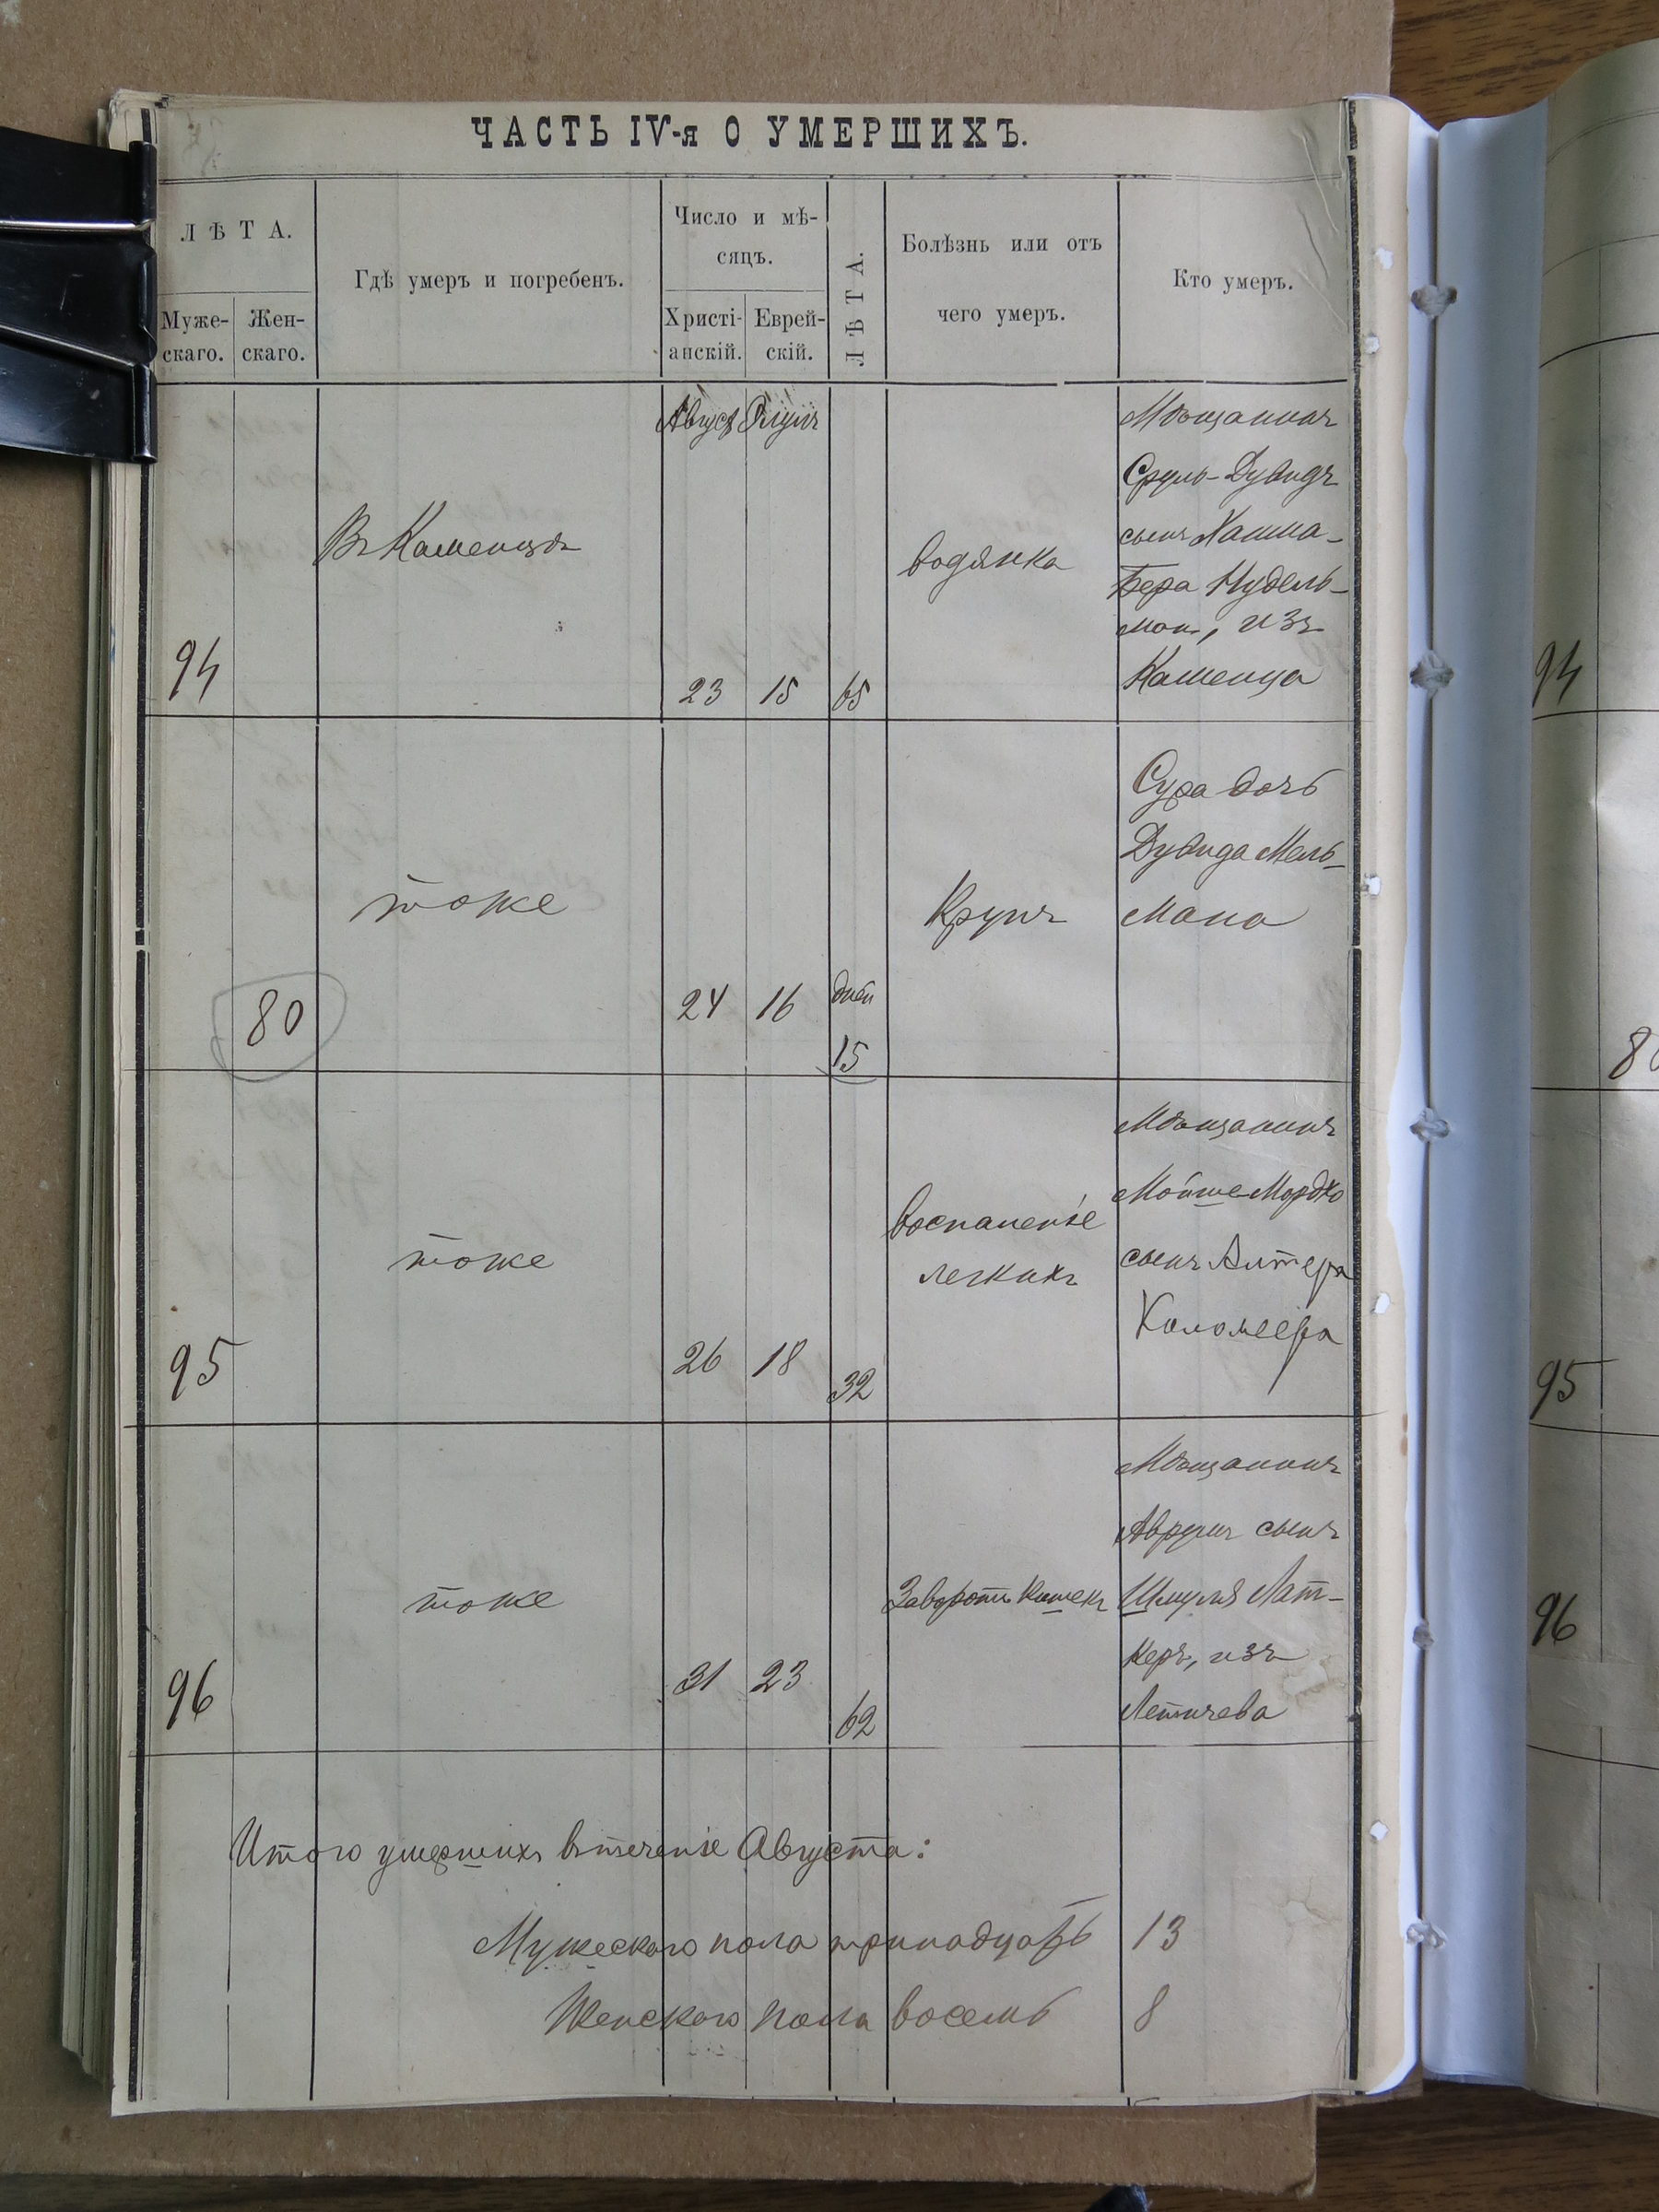 ЧАСТЬ IV-я О УМЕРШИХЪ.
ЛѢТА.
Муже-
скаго.
Жен-
скаго.
Гдѣ умеръ и погребенъ.
Число и мѣ-
сяцъ.
Христі-
анскій.
Еврей-
скій.
ЛѢТА.
Болѣзнь или отъ
чего умеръ.
Кто умеръ.
94
Въ Каменцѣ
Август
Элулъ
23
15
65
водянка
Мѣщанинъ
Сруль-Дувидъ
сынъ Хаима-
Бера Нудель-
ман, изъ
Каменца
94
80
тоже
24
16
дней
15
Крупъ
Сура дочь
Дувида Мель-
мана
95
тоже
26
18
32
воспаленіе
легкихъ
Мѣщанинъ
Мойше Мордхо
сынъ Алтера
Коломеера
95
96
тоже
31
23
62
Заворотъ кишекъ
Мѣщанинъ
Аврумъ сынъ
Шмуля Лат-
керъ, изъ
Летичева
96
Итого умершихъ втеченіе Августа:
Мужескаго пола тринадцать 13
Женскаго пола восемь 8